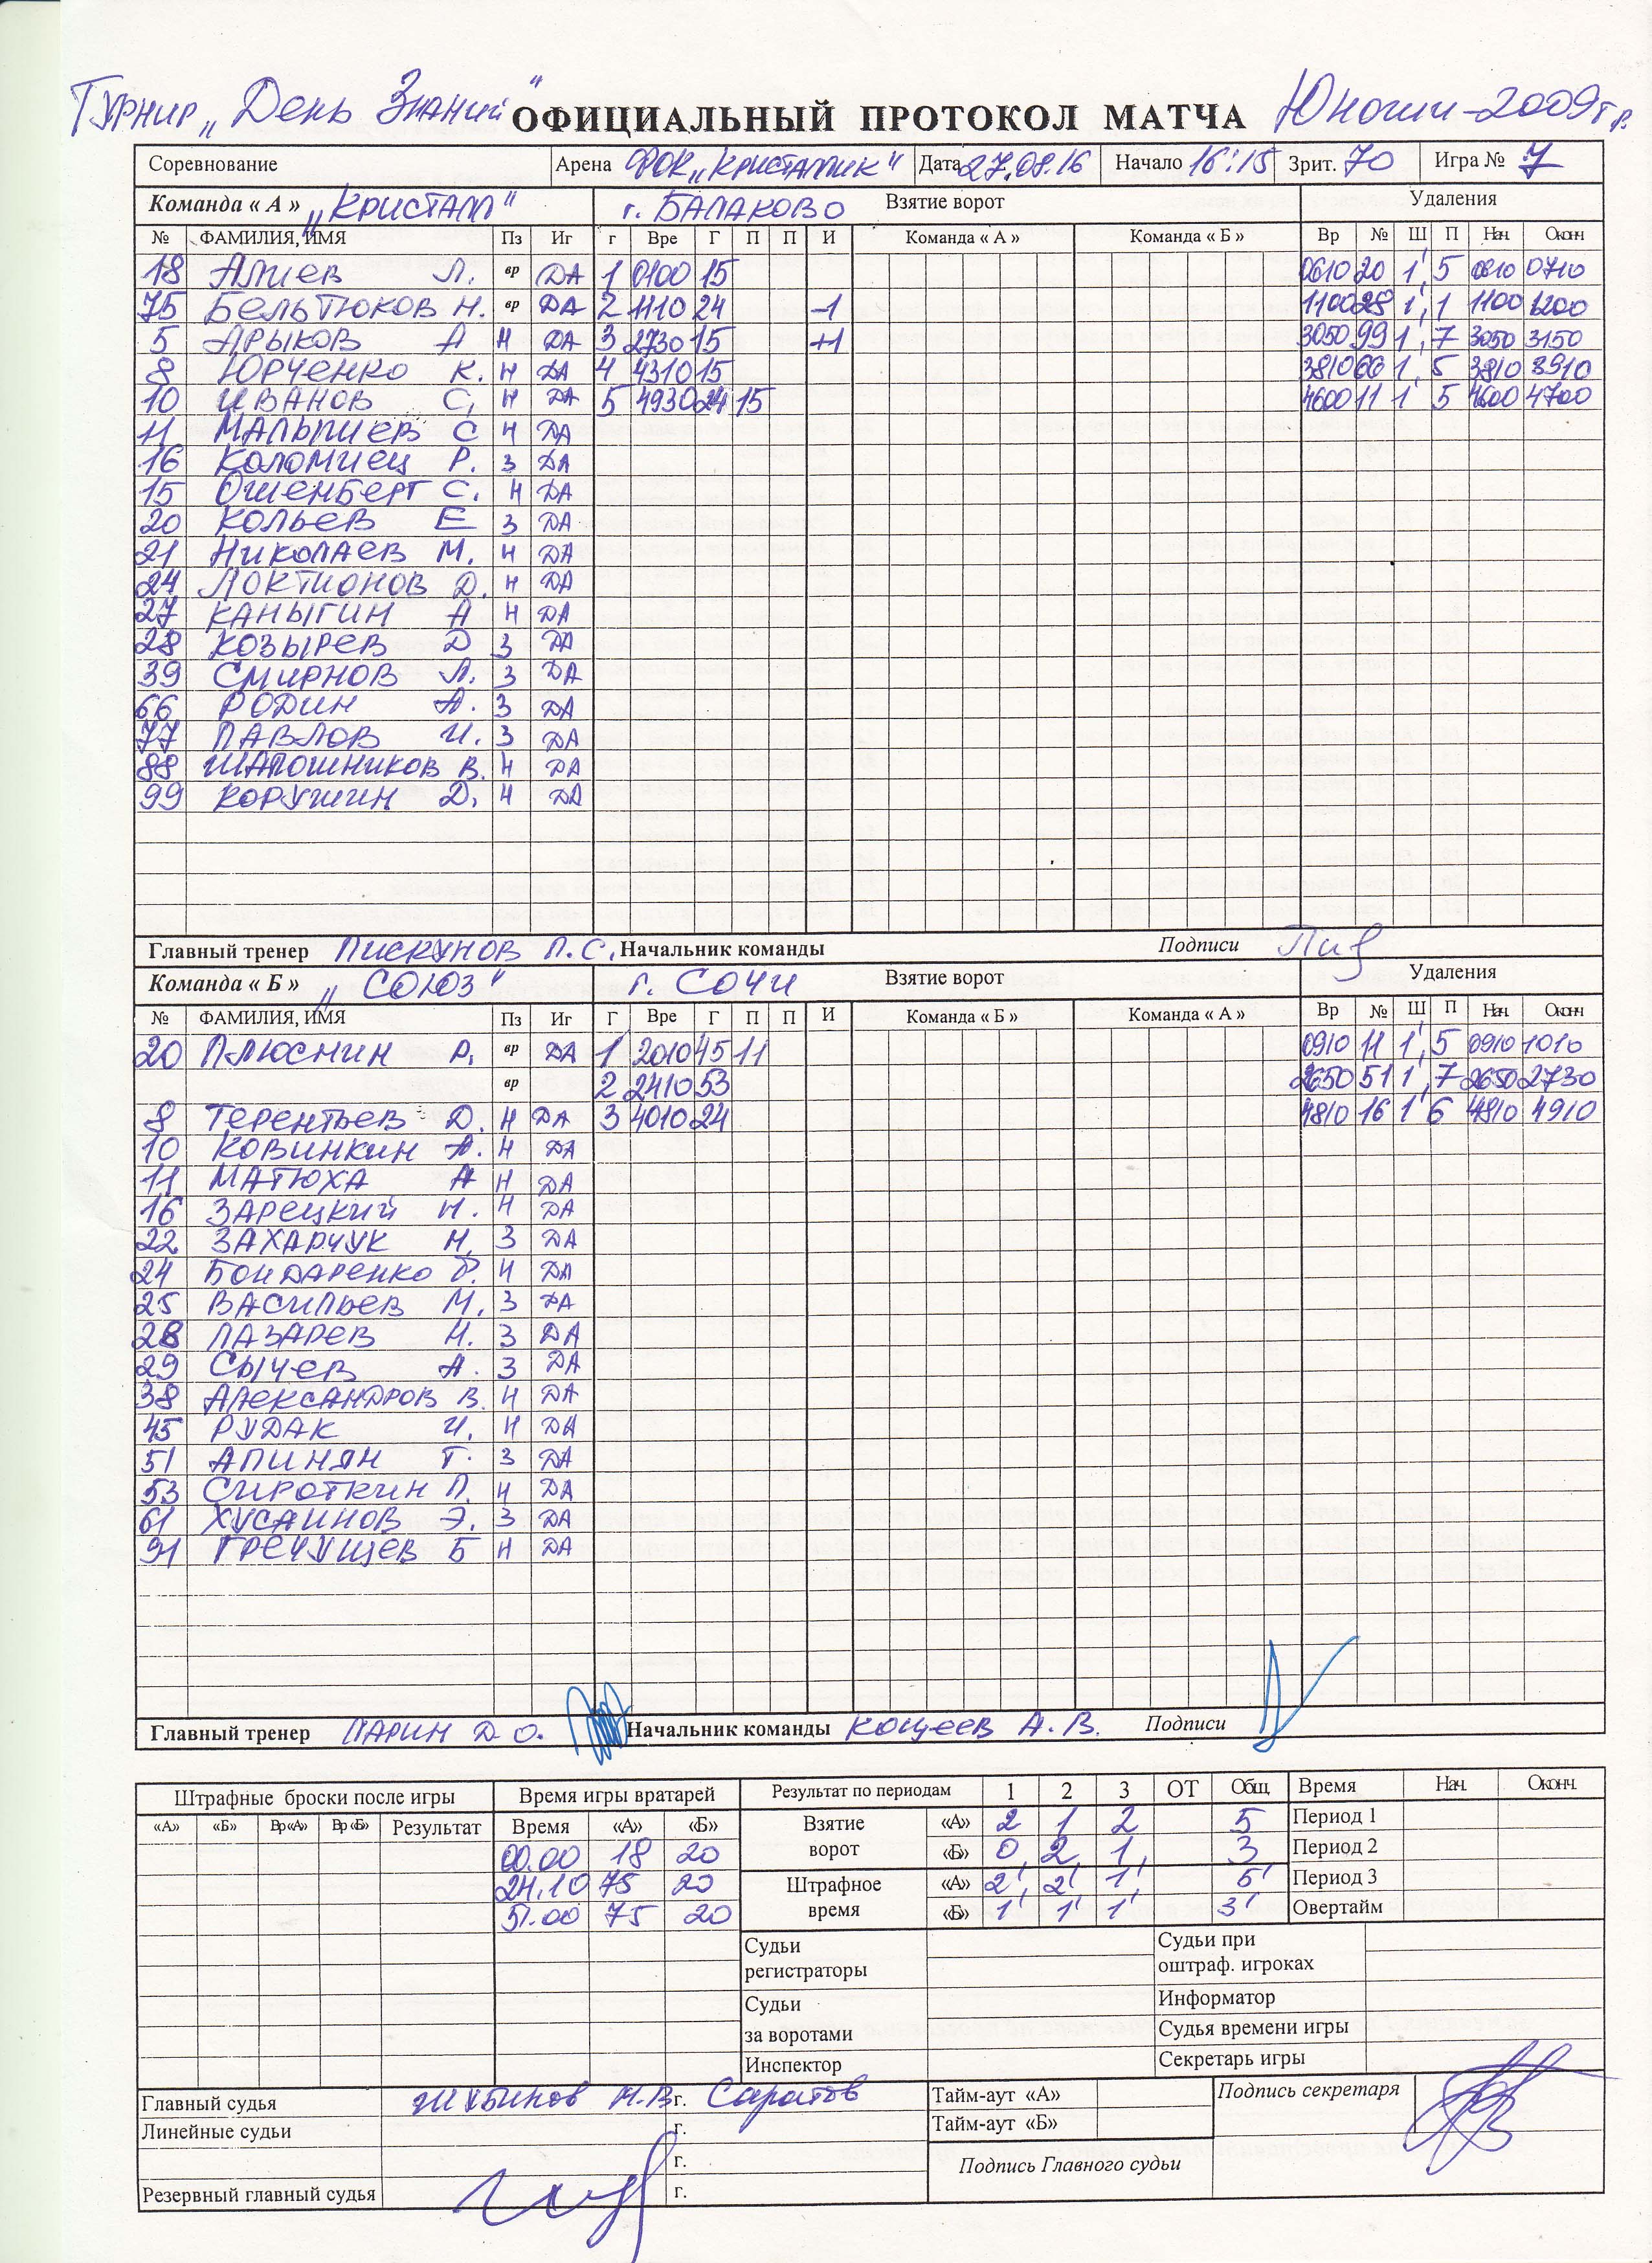 Турнир „День Знаний" ОФИЦИАЛЬНЫЙ ПРОТОКОЛ МАТЧА Юноши-2009г.р.
Соревнование Арена ФОК „Кристаллик" Дата 27.08.16 Начало 16:15 Зрит. 70 Игра № 7
Команда « А » „Кристалл" г. Балаково Взятие ворот Удаления
№ ФАМИЛИЯ, ИМЯ Пз Иг г Вре Г П П И Команда « А » Команда « Б » Вр № Ш П Нач. Оконч
18 Алиев Л. вр ДА 1 0100 15 0610 20 1' 5 0610 0710
75 Бельтюков Н. вр ДА 2 1110 24 -1 1100 28 1' 1 1100 1200
5 Арыков А Н ДА 3 2730 15 +1 3050 99 1' 7 3050 3150
8 Юрченко К. Н ДА 4 4310 15 3810 66 1' 5 3810 3910
10 Иванов С. Н ДА 5 4930 24 15 4600 11 1' 5 4600 4700
11 Малышев С Н ДА
16 Коломиец Р. З ДА
15 Ошенберг С. Н ДА
20 Кольев Е З ДА
21 Николаев М. Н ДА
24 Локтионов Д. Н ДА
27 Каныгин А Н ДА
28 Козырев Д З ДА
39 Смирнов Л. З ДА
66 Родин А. З ДА
77 Павлов И. З ДА
88 Шапошников В. Н ДА
99 Корушин Д. Н ДА
Главный тренер Пискунов П.С. Начальник команды Подписи
Команда « Б » „Союз" г. Сочи Взятие ворот Удаления
№ ФАМИЛИЯ, ИМЯ Пз Иг Г Вре Г П П И Команда « Б » Команда « А » Вр № Ш П Нач. Оконч
20 Плюснин Р. вр ДА 1 2010 45 11 0910 11 1' 5 0910 1010
вр 2 2410 53 2650 51 1' 7 2650 2730
8 Терентьев Д. Н ДА 3 4010 24 4810 16 1' 6 4810 4910
10 Ковинкин А. Н ДА
11 Матюха А Н ДА
16 Зарецкий Н. Н ДА
22 Захарчук Н. З ДА
24 Бондаренко Р. Н ДА
25 Васильев М. З ДА
28 Лазарев Н. З ДА
29 Сычев А. З ДА
38 Александров В. Н ДА
45 Рудак И. Н ДА
51 Апинян Г. З ДА
53 Сироткин П. Н ДА
61 Хусаинов Э. З ДА
91 Гречущев Б Н ДА
Главный тренер Ларин Д О. Начальник команды Кощеев А. В. Подписи
Штрафные броски после игры Время игры вратарей Результат по периодам 1 2 3 ОТ Общ. Время Нач. Оконч.
«А» «Б» Вр«А» Вр«Б» Результат Время «А» «Б» Взятие ворот «А» 2 1 2 5 Период 1
00.00 18 20 «Б» 0 2 1 3 Период 2
24.10 75 20 Штрафное время «А» 2' 2' 1' 5' Период 3
51.00 75 20 «Б» 1' 1' 1' 3' Овертайм
Судьи регистраторы Судьи при оштраф. игроках
Судьи за воротами Информатор
Судья времени игры
Инспектор Секретарь игры
Главный судья Н.В г. Саратов Тайм-аут «А» Подпись секретаря
Линейные судьи г. Тайм-аут «Б»
г. Подпись Главного судьи
Резервный главный судья г.